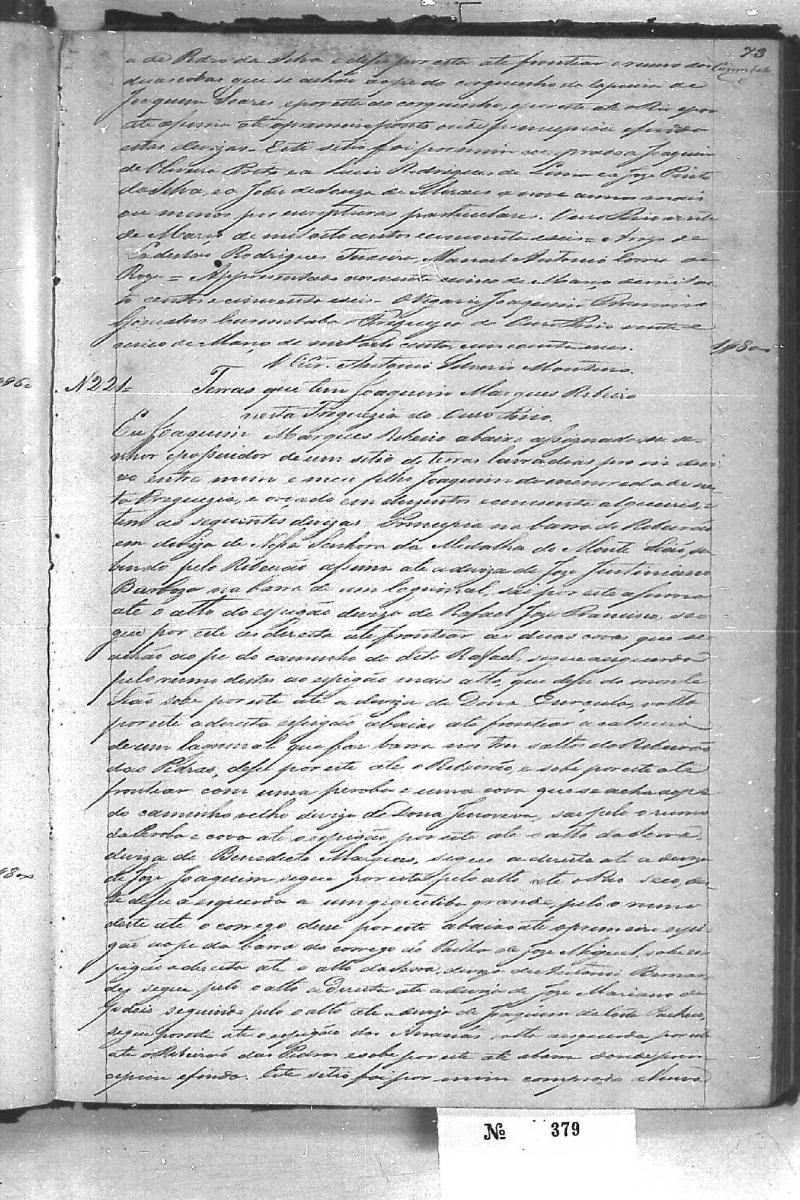 73
a de Pedro da Silva e desse por este ate frontiar o rumo das
duas covas que se achão ao pe do corguinho da tapeira de
Joaquim Soares, e por este ao corguinho, e por este ate o Rio e por
este asima ate o primeiro ponto onde principiou e finda
estas divizas. Este sitio foi por mim comprado a Joaquim
de Oliveira Preto e a Lucio Rodrigues de Lima e a Joze Pinto
da Silva, e a João de Souza de Moraes a nove annos mais
ou menos por escripturas particulares. Ouro Fino vinte
de Março de mil oito centos e cincoenta e seis = Arogo de
Rodrigues Teixeira, Manoel Antonio
= Appresentado aos vinte e cinco de Março de mil oi
to centos e cincoenta e seis = O Vigario Joaquim Firmino
Gonsalves Curimbaba = Freguezia do Ouro Fino vinte e
cinco de Março de mil oito centos cincoenta e seis.
O Escr. Antonio Monteiro.
N 221= Terras que tem Joaquim Marques Ribeiro
nesta Freguezia do Ouro Fino.
Eu Joaquim Marques Ribeiro abaixo assignado sou se-
nhor e possuidor de um sitio de terras lavradias pro in divi
zo entre mim e meu filho Joaquim do menor de nes
ta Freguezia, e orçado em duzentos e cincoenta alqueires, e
tem as seguintes divizas = Principia na barra do Ribeirão
em diviza de Nossa Senhora da Medalha do Monte Sião, su
bindo pelo Ribeirão assima ate a diviza de Joze Justiniano
Barboza na barra de um lagrimal, sae por este assima
ate o alto do espigão diviza de Rafael Joze Francisco, se-
gue por este a direita ate frontiar as duas covas, que se
achão ao pe do caminho do dito Rafael, segue a esquerda
pelo rumo destas ao espigão mais alto, que desse do monte
Sião sobe por este ate a diviza de Dona volta
por este a direita espigão abaixo ate frontiar a cabeceira
de um lagrimal que faz barra nos tres saltos do Ribeirão
das Pedras, desse por este ate o Ribeirão, e sobe por este ate
frontiar com uma peroba e uma cova que se acha ao pe
do caminho velho diviza de Dona Jenoveva, sae pelo o rumo
da Peroba e cova ate o espigão, por este ate o alto da Serra
diviza de Benedicto Marques, segue a direita ate a diviza
de Joze Joaquim segue por esta pelo alto ate o Pão seco, des-
te desse a esquerda a um gequitiba grande, pelo o rumo
deste ate o corrego desse por este abaixo ate o primeiro espi
gão ao pe da barra do corrego do de Joze Miguel, sobe es-
pigão a direita ate o alto da diviza de Antonio Bernar
des segue pelo o alto a direita ate a diviza de Joze Mariano de
Godois seguindo pelo o alto ate a diviza de Joaquim da Costa Pacheco,
segue por este ate o espigão das Araras volta a esquerda por este
ate o Ribeirão das Pedras e sobe por este ate abarra donde prin
cipiou e finda. Este sitio foi por mim comprado
Nº 379